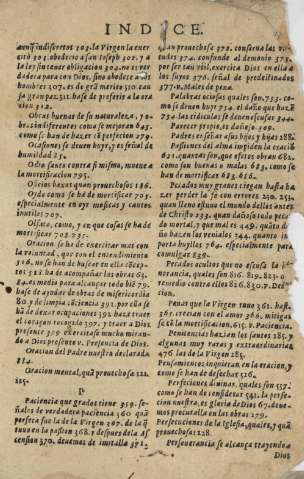 INDICE.
aunq̃ indiscretos 303. la Virgen la exer
citò 303. obedecio a san Ioseph 307. y a
la ley sin tener obligacion 302. no es ver
dadera para con Dios, sino obedece a los
hombres 307. es de grã merito 310. cau
sa gran paz 311. hase de preferir a la ora
cion 312.
Obras buenas de su naturaleza, no
bras indiferentes como se mejoran 645.
como se han de hazer cõ perfeccion 279.
Ocasiones se deuen huyr, y es señal de
humildad 25.
Odio santo contra si mismo, mueue a
la mortificacion 795.
Oficios baxos quan prouechosos 186.
Oydo como se ha de mortificar 705.
especialmente en oyr musicas y cantos
inutiles 707.
Olfato, como, y en que cosas se ha de
mortificar 708. 731.
Oracion se ha de exercitar mas con
la voluntad, que con el entendimiento
316. no se han de buscar en ella
312. ha de acompañar las obras 63.
84. es medio para alcançar todo biẽ 79.
hase de ayudar de obras de misericordia
80. y de limpia cõciencia 391. por ella se
ha de dexar ocupaciones 392. haze traer
el coraçon recogido 397. y traer a Dios
presente 379. exercitase mucho mirando
a Dios presente v. Presencia de Dios.
Oracion del Padre nuestro declarada
814.
Oracion mental, quã prouechosa 122.
125.
P
Paciencia que grados tiene 359. se-
ñales de verdadera paciencia 360. quã
perfeta fue la de la Virgen 267. de la q̃
tuuo en la passion 268. y despues de la As
cension 370. deuemos de imitalla 371.
quan prouechosa 372. conserua las vir
tudes 374. confunde al demonio 375.
por ser tan vtil, exercita Dios en ella a
los suyos 376. señal de predestinados
377. v. Males de pena.
Palabras ociosas quales son, 753. co-
mo se deuen huyr 754. el daño que hazẽ
754. las ridiculas se deuen escusar 344.
Parecer propio, es dañoso 309.
Padres enseñar a sus hijos y hijas 288.
Passiones del alma impiden la oraciõ
631. quantas son, que efetos obran 682.
como son buenas o malas 683. como se
han de mortificar 683. 686.
Pecados muy graues ciegan hasta ha
zer perder la fè con errores 250. 251.
quan lleno estuuo el mundo dellos antes
de Christo 233. quan dañoso todo peca-
do mortal, y que mal es 449. quãto da
ño hazen los veniales 244. quanto im
porta huyllos 764. especialmente para
comulgar 839.
Pecados ocultos que no escusa la ig-
norancia, quales son 816. 819. 823. o
remedio contra ellos 826. 830. v. Deu-
cion.
Penas que la Virgen tuuo 361. hasta
367. crecian con el amor 366. mitigã
se cõ la mortificacion. 615. v. Paciencia.
Penitencias hazian los santos 285. y
algunas muy raras y extraordinarias
476. las de la Virgen 285.
Pensamientos inquietan, en la oracion, y
como se han de desechar 516.
Perfeciones diuinas, quales son 537.
como se han de considerar 541. la per-
fecion nuestra, es gloria de Dios 67. deue-
mos procuralla en las obras 279.
Perfecciones de la Iglesia, quales, y quã
prouechosas
Perseuerancia se alcança trayendo a
Dios